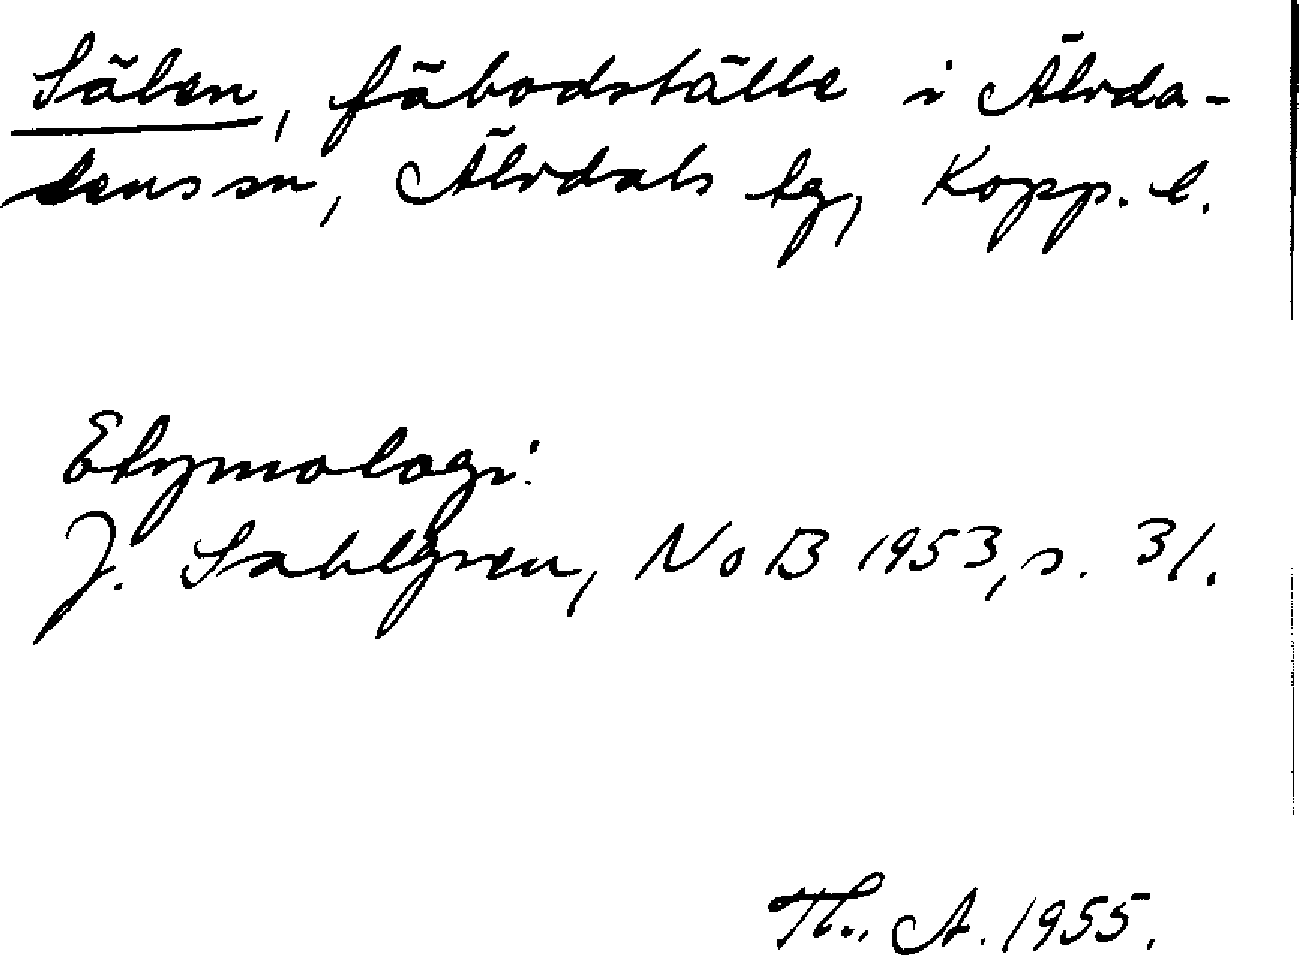 Sälen, fäbodställe i Älvda-
lens sn, Älvdals tg, Kopp. l.
Etymologi:
J. Sahlgren, NoB 1953, s. 31.
Th. A. 1955.